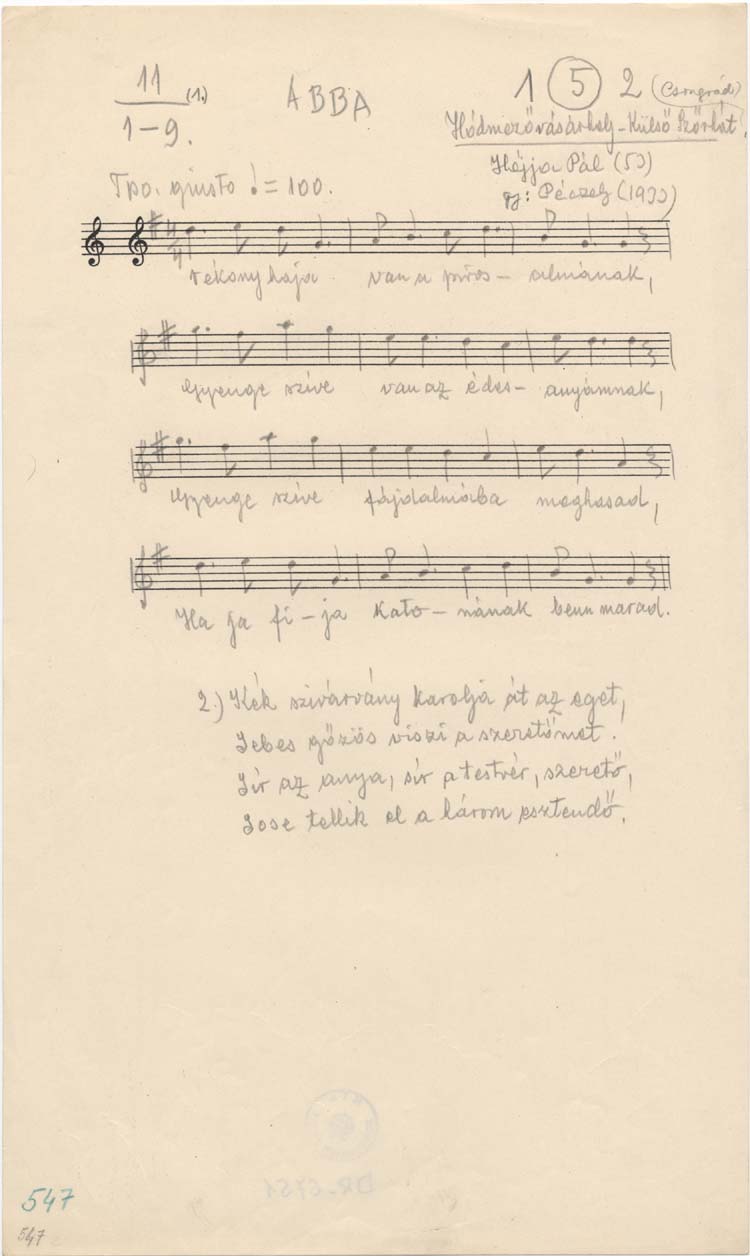 11
1-9.
(1.)
ABBA
1 5 2 (Csongrád)
Hódmezővásárhely-Külső Szőrhát
Héjja Pál (53)
gy: Péczely (1933)
Tpo. giusto ♩= 100.
Vékony haja van a piros- almának,
Gyenge szíve van az édes- anyámnak,
Gyenge szíve fájdalmába meghasad,
Ha ja fi-ja kato-nának benn marad.
2.) Kék szivárvány karolja át az eget,
Sebes gőzös viszi a szeretőmet.
Sír az anya, sír a testvér, szerető,
Sose tellik el a három esztendő.
547
547